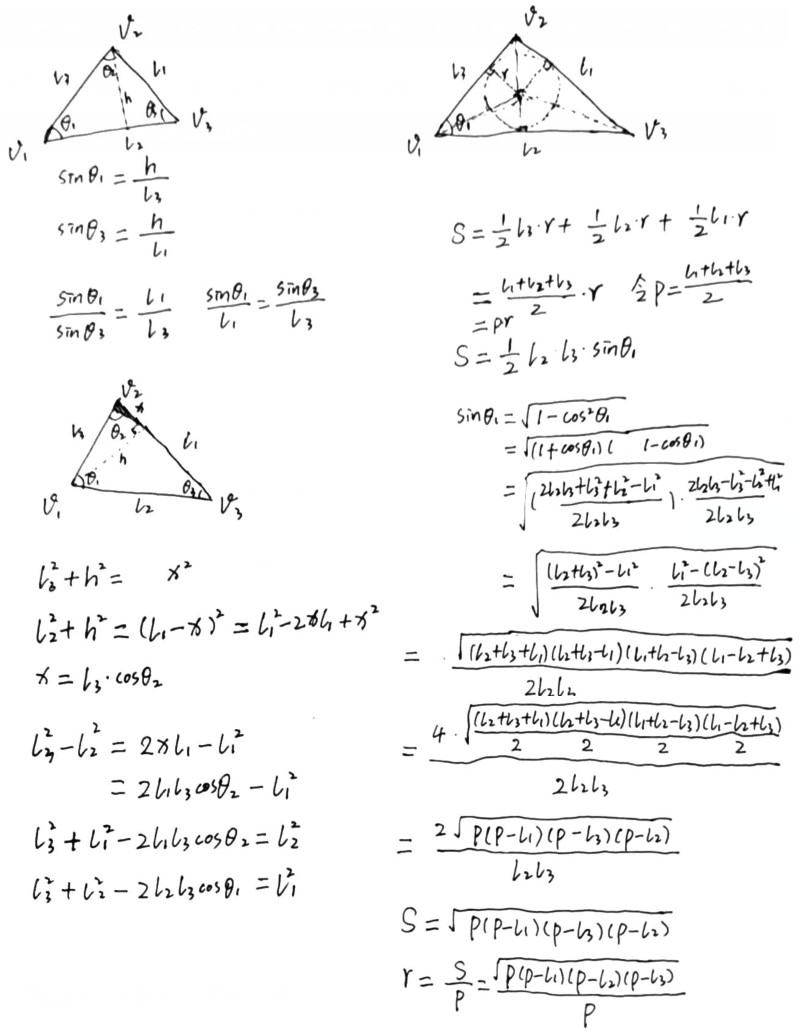 v₂
l₃ θ₂ l₁
h
θ₁ θ₃
v₁ l₂ v₃
sinθ₁ = h/l₃
sinθ₃ = h/l₁
sinθ₁/sinθ₃ = l₁/l₃ sinθ₁/l₁ = sinθ₃/l₃
v₂
x
l₃ θ₂ l₁
h
θ₁ θ₃
v₁ l₂ v₃
l₃² + h² = x²
l₂² + h² = (l₁-x)² = l₁² - 2xl₁ + x²
x = l₃·cosθ₂
l₃² - l₂² = 2xl₁ - l₁²
= 2l₁l₃cosθ₂ - l₁²
l₃² + l₁² - 2l₁l₃cosθ₂ = l₂²
l₃² + l₂² - 2l₂l₃cosθ₁ = l₁²
v₂
l₃ r l₁
θ₁
v₁ l₂ v₃
S = 1/2 l₃·r + 1/2 l₂·r + 1/2 l₁·r
= (l₁+l₂+l₃)/2 · r 令 p = (l₁+l₂+l₃)/2
= pr
S = 1/2 l₂·l₃·sinθ₁
sinθ₁ = √(1-cos²θ₁)
= √((1+cosθ₁)(1-cosθ₁))
= √(((2l₂l₃+l₃²+l₂²-l₁²)/(2l₂l₃))·(2l₂l₃-l₃²-l₂²+l₁²)/(2l₂l₃))
= √(((l₂+l₃)²-l₁²)/(2l₂l₃) · (l₁²-(l₂-l₃)²)/(2l₂l₃))
= √((l₂+l₃+l₁)(l₂+l₃-l₁)(l₁+l₂-l₃)(l₁-l₂+l₃))/(2l₂l₃)
= 4·√((l₂+l₃+l₁)/2 (l₂+l₃-l₁)/2 (l₁+l₂-l₃)/2 (l₁-l₂+l₃)/2)/(2l₂l₃)
= 2√(p(p-l₁)(p-l₃)(p-l₂))/(l₂l₃)
S = √(p(p-l₁)(p-l₃)(p-l₂))
r = S/p = √(p(p-l₁)(p-l₂)(p-l₃))/p